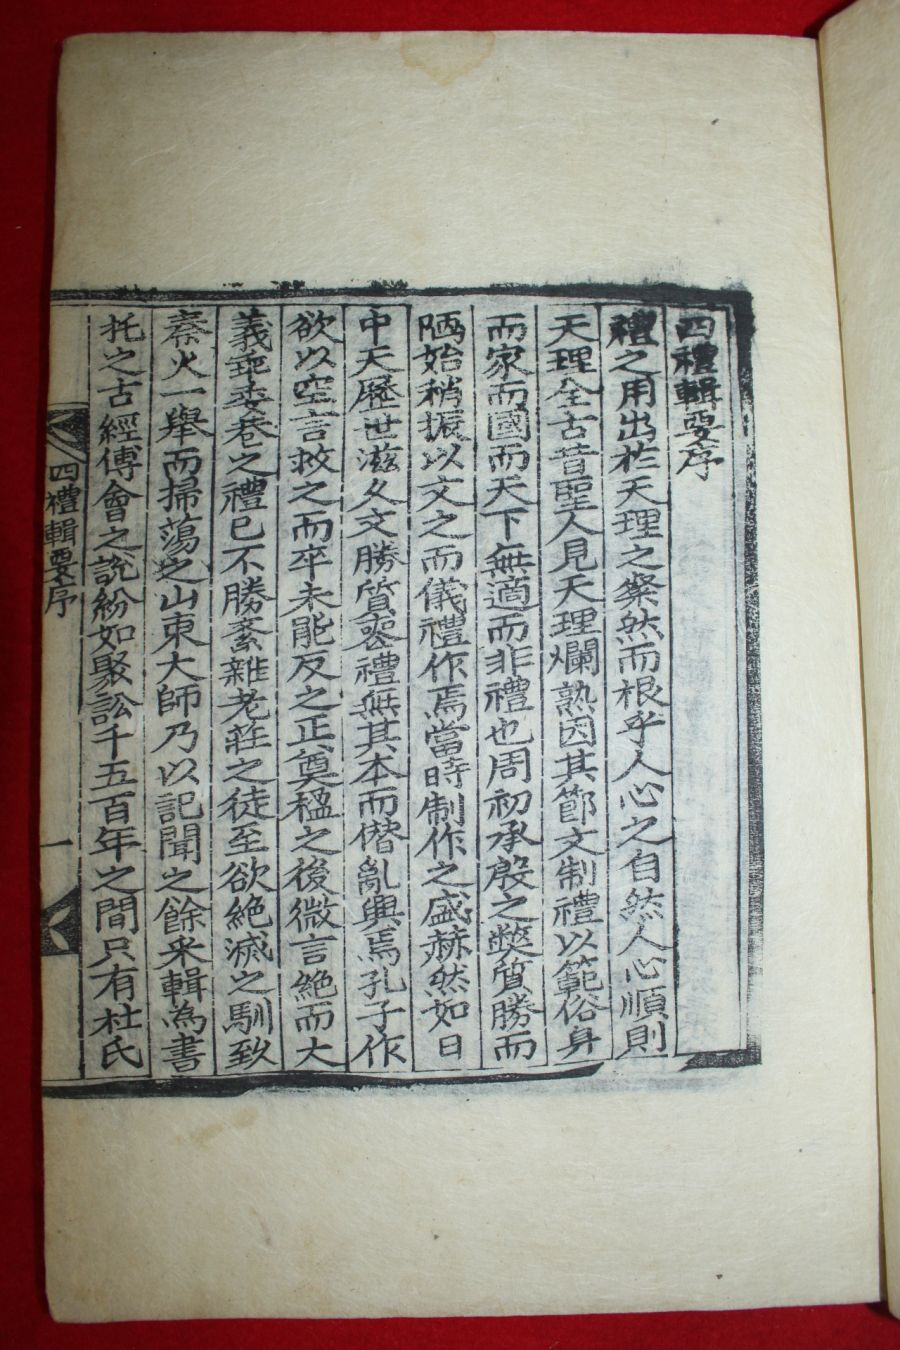 四禮輯要序
禮之用出於天理之粲然而根乎人心之自然人心順則
天理全古昔聖人見天理爛熟因其節文制禮以範俗身
而家而國而天下無適而非禮也周初承殷之獘質勝而
陋始稍振以文之而儀禮作焉當時制作之盛赫然如日
中天歷世滋久文勝質喪禮無其本而僭亂興焉孔子作
欲以空言救之而卒未能反之正奠楹之後微言絶而大
義乖委巷之禮已不勝紊雜老莊之徒至欲絶滅之馴致
秦火一擧而掃蕩之山東大師乃以記聞之餘采輯為書
托之古經傅會之說紛如聚訟千五百年之間只有杜氏
四禮輯要序
一